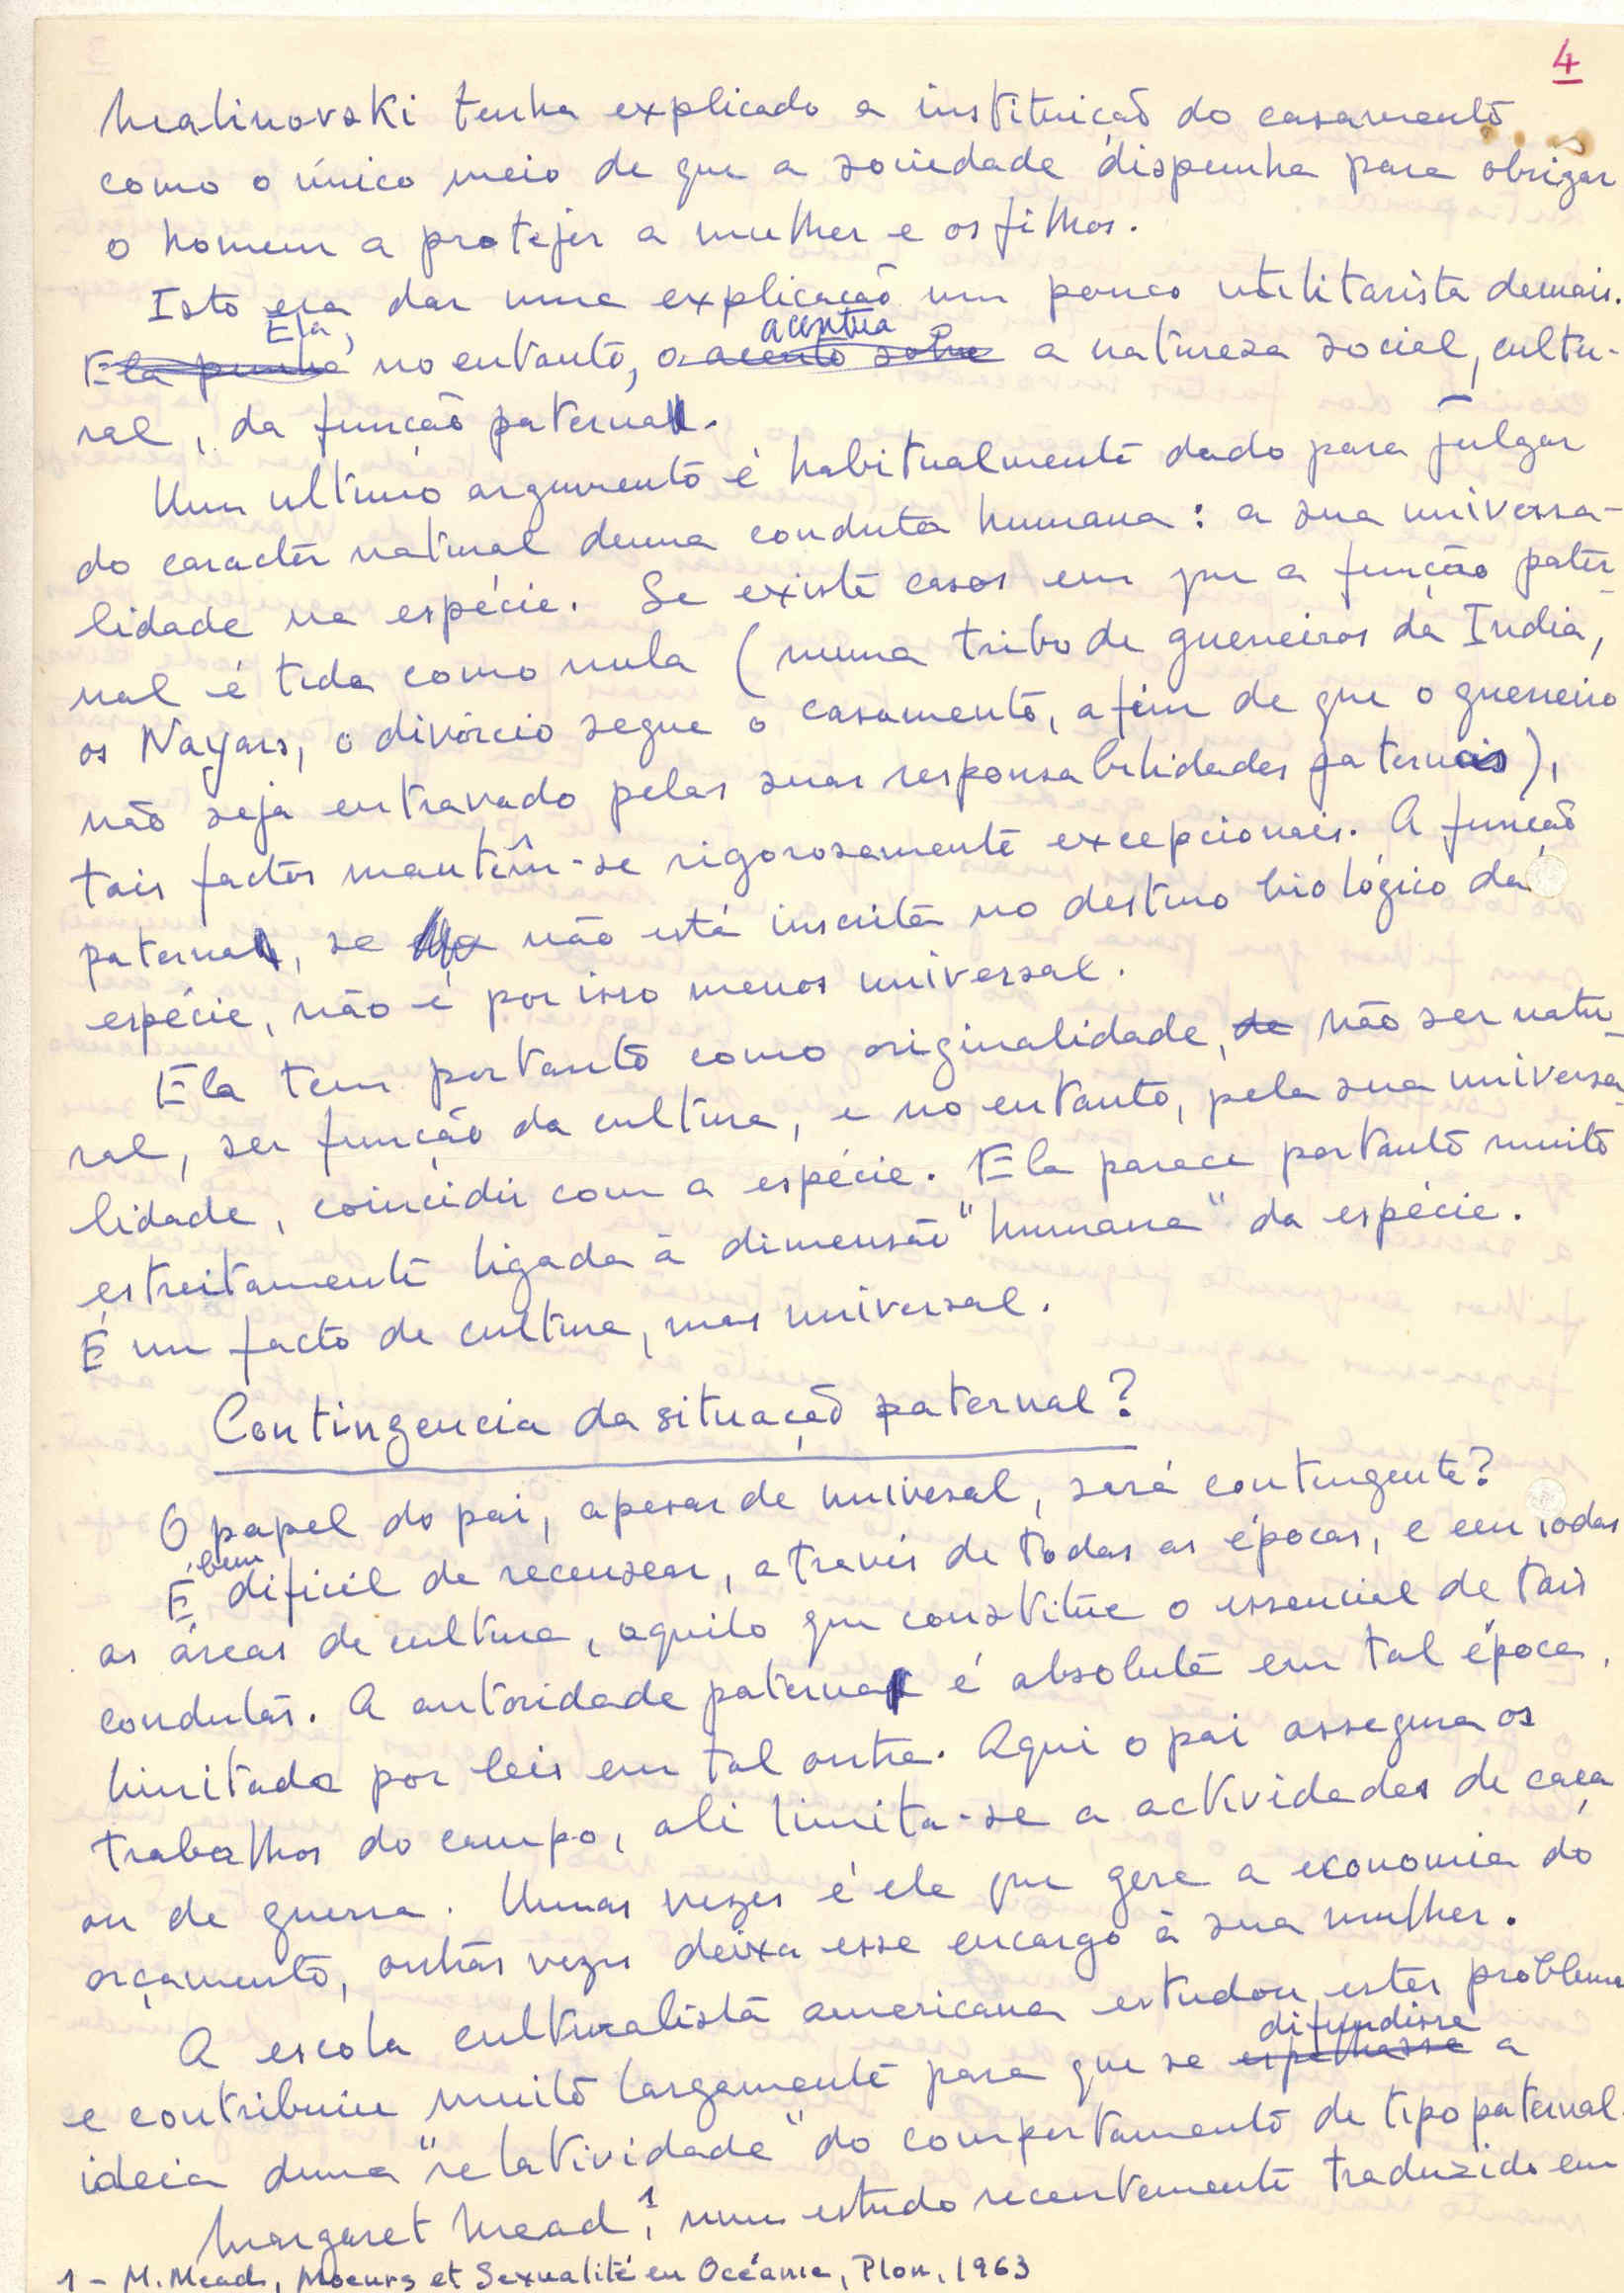 4
Malinovski tenha explicado a instituição do casamento
como o único meio de que a sociedade dispunha para obrigar
o homem a protejer a mulher e os filhos.
Isto era dar uma explicação um pouco utilitarista demais.
Ela, acentua
Ela punha no entanto, o acento sobre a natureza social, cultu-
ral, da função paternal.
Um ultimo argumento é habitualmente dado para julgar
do caracter natural duma conduta humana: a sua universa-
lidade na espécie. Se existe casos em que a função pater-
nal é tida como nula (numa tribo de guerreiros da India,
os Nayars, o divórcio segue o casamento, afim de que o guerreiro
não seja entravado pelas suas responsabilidades paternais),
tais factos mantêm-se rigorosamente excepcionais. A função
paternal, se não está inscrita no destino biológico da
espécie, não é por isso menos universal.
Ela tem portanto como originalidade, de não ser natu-
ral, ser função da cultura, e no entanto, pela sua universa-
lidade, coincidir com a espécie. Ela parece portanto muito
estreitamente ligada à dimensão "humana" da espécie.
É um facto de cultura, mas universal.
Contingencia da situação paternal?
O papel do pai, apesar de universal, será contingente?
bem
É difícil de recensear, através de todas as épocas, e em todas
as áreas de cultura, aquilo que constitue o essencial de tais
condutas. A autoridade paternal é absoluta em tal época,
limitada por leis em tal outra. Aqui o pai assegura os
trabalhos do campo, ali limita-se a actividades de caça
ou de guerra. Umas vezes é ele que gere a economia do
orçamento, outras vezes deixa esse encargo à sua mulher.
A escola culturalista americana estudou estes problemas
difundisse
e contribuiu muito largamente para que se espelhasse a
ideia duma "relatividade" do comportamento de tipo paternal.
Margaret Mead¹, num estudo recentemente traduzido em
1 - M. Mead, Moeurs et Sexualité en Océanie, Plon, 1963